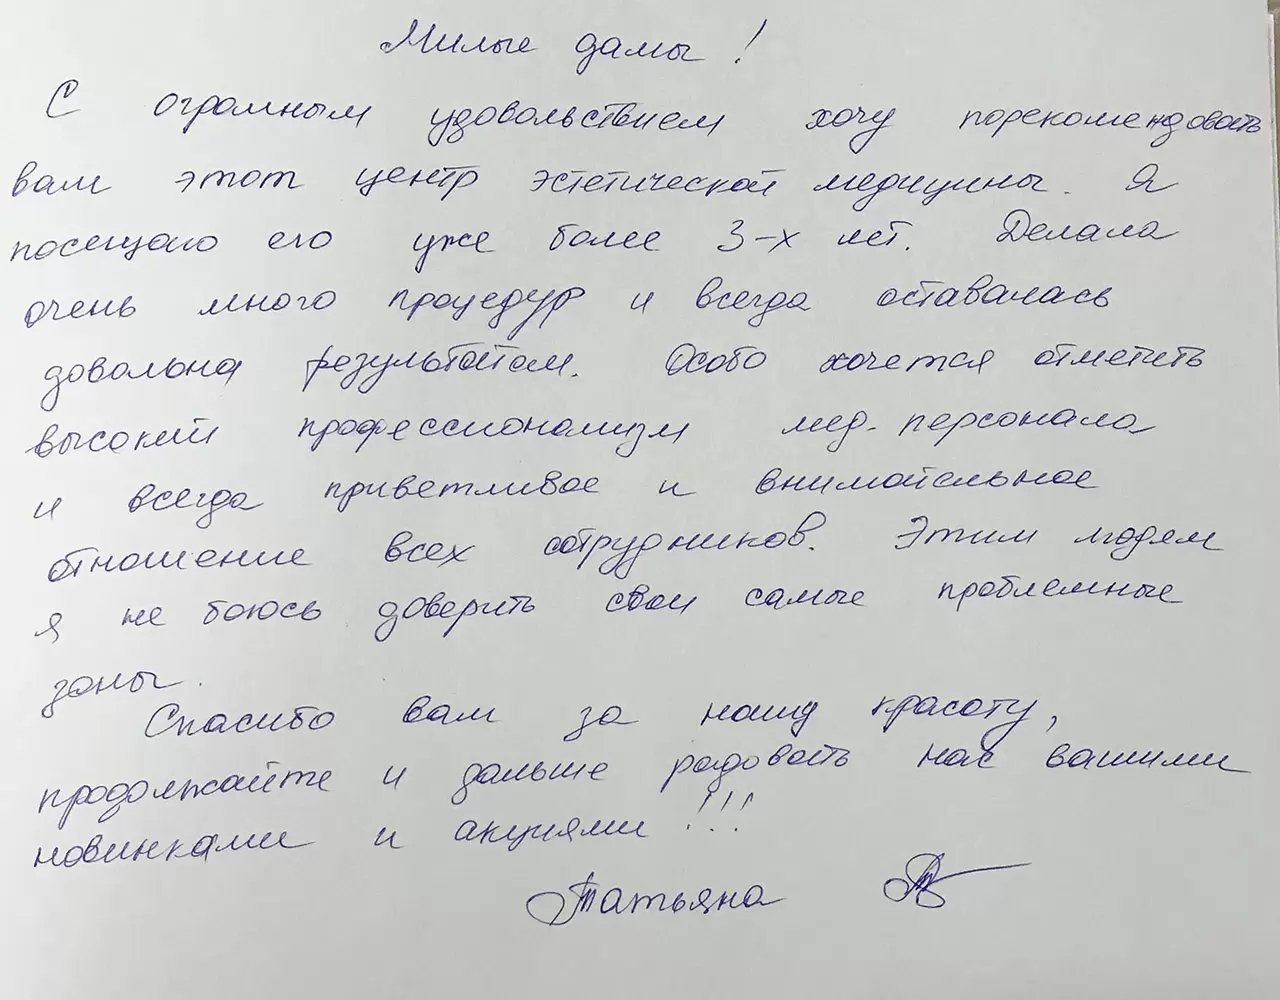 Милые дамы!
С огромным удовольствием хочу порекомендовать
вам этот центр эстетической медицины. Я
посещаю его уже более 3-х лет. Делала
очень много процедур и всегда оставалась
довольна результатом. Особо хочется отметить
высокий профессионализм мед. персонала
и всегда приветливое и внимательное
отношение всех сотрудников. Этим людям
я не боюсь доверить свои самые проблемные
зоны.
Спасибо вам за нашу красоту,
продолжайте и дальше радовать нас вашими
новинками и акциями!!!
Татьяна